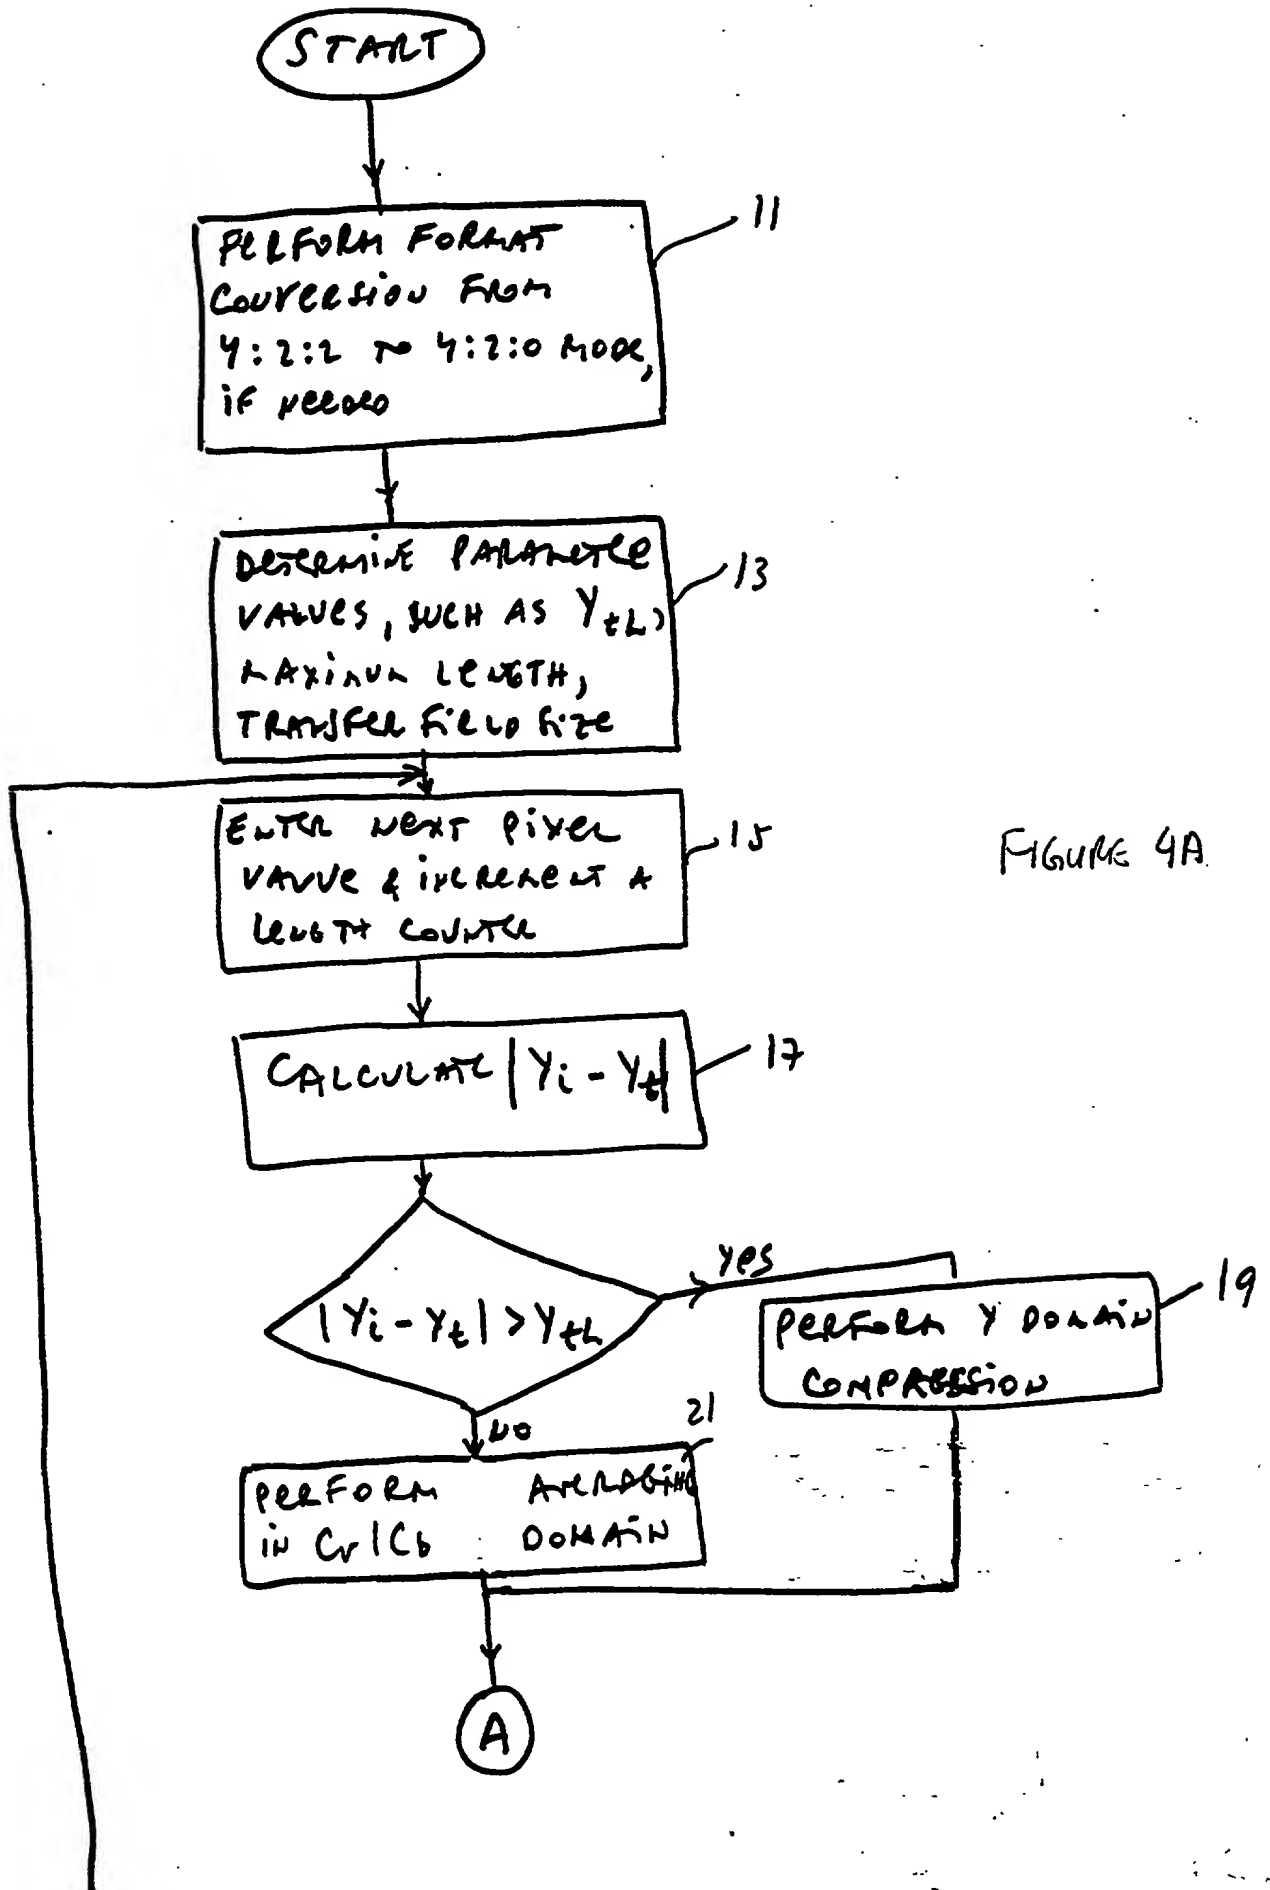 START
PERFORM FORMAT
CONVERSION FROM
4:2:2 TO 4:2:0 MODE,
IF NEEDED
11
DETERMINE PARAMETER
VALUES, SUCH AS Yth,
MAXIMUM LENGTH,
TRANSFER FIELD SIZE
13
ENTER NEXT PIXEL
VALUE & INCREMENT A
LENGTH COUNTER
15
FIGURE 4A
CALCULATE |Yi - Yt|
17
|Yi - Yt| > Yth
YES
PERFORM Y DOMAIN
COMPRESSION
19
NO
21
PERFORM AVERAGING
IN Cr/Cb DOMAIN
A